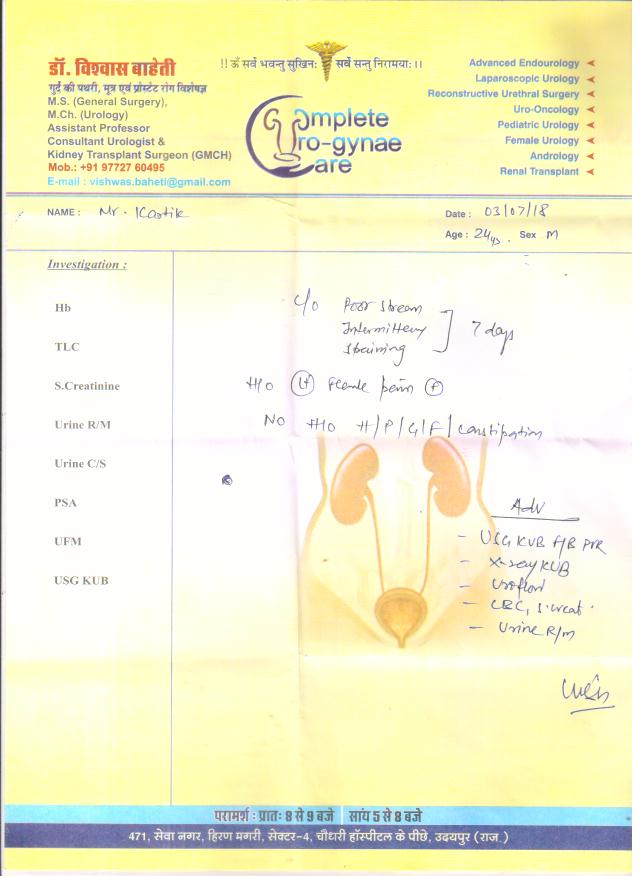 !! ॐ सर्वे भवन्तु सुखिनः सर्वे सन्तु निरामयाः ।।
डॉ. विश्वास बाहेती
गुर्दे की पथरी, मूत्र एवं प्रोस्टेट रोग विशेषज्ञ
M.S. (General Surgery),
M.Ch. (Urology)
Assistant Professor
Consultant Urologist &
Kidney Transplant Surgeon (GMCH)
Mob.: +91 97727 60495
E-mail : vishwas.baheti@gmail.com
Complete
Uro-gynae
Care
Advanced Endourology
Laparoscopic Urology
Reconstructive Urethral Surgery
Uro-Oncology
Pediatric Urology
Female Urology
Andrology
Renal Transplant
NAME : Mr. Kartik
Date : 03/07/18
Age : 24 yrs. Sex M
Investigation :
Hb
TLC
S.Creatinine
Urine R/M
Urine C/S
PSA
UFM
USG KUB
C/o Poor stream
Intermittency
Straining
7 days
H/o Lt flank pain +
No H/o H/P/G/F/constipation
Adv
- USG KUB f/b PVR
- X-ray KUB
- Uroflow
- CBC, S.creat.
- Urine R/m
परामर्श : प्रातः 8 से 9 बजे सांय 5 से 8 बजे
471, सेवा नगर, हिरण मगरी, सेक्टर-4, चौधरी हॉस्पीटल के पीछे, उदयपुर (राज.)